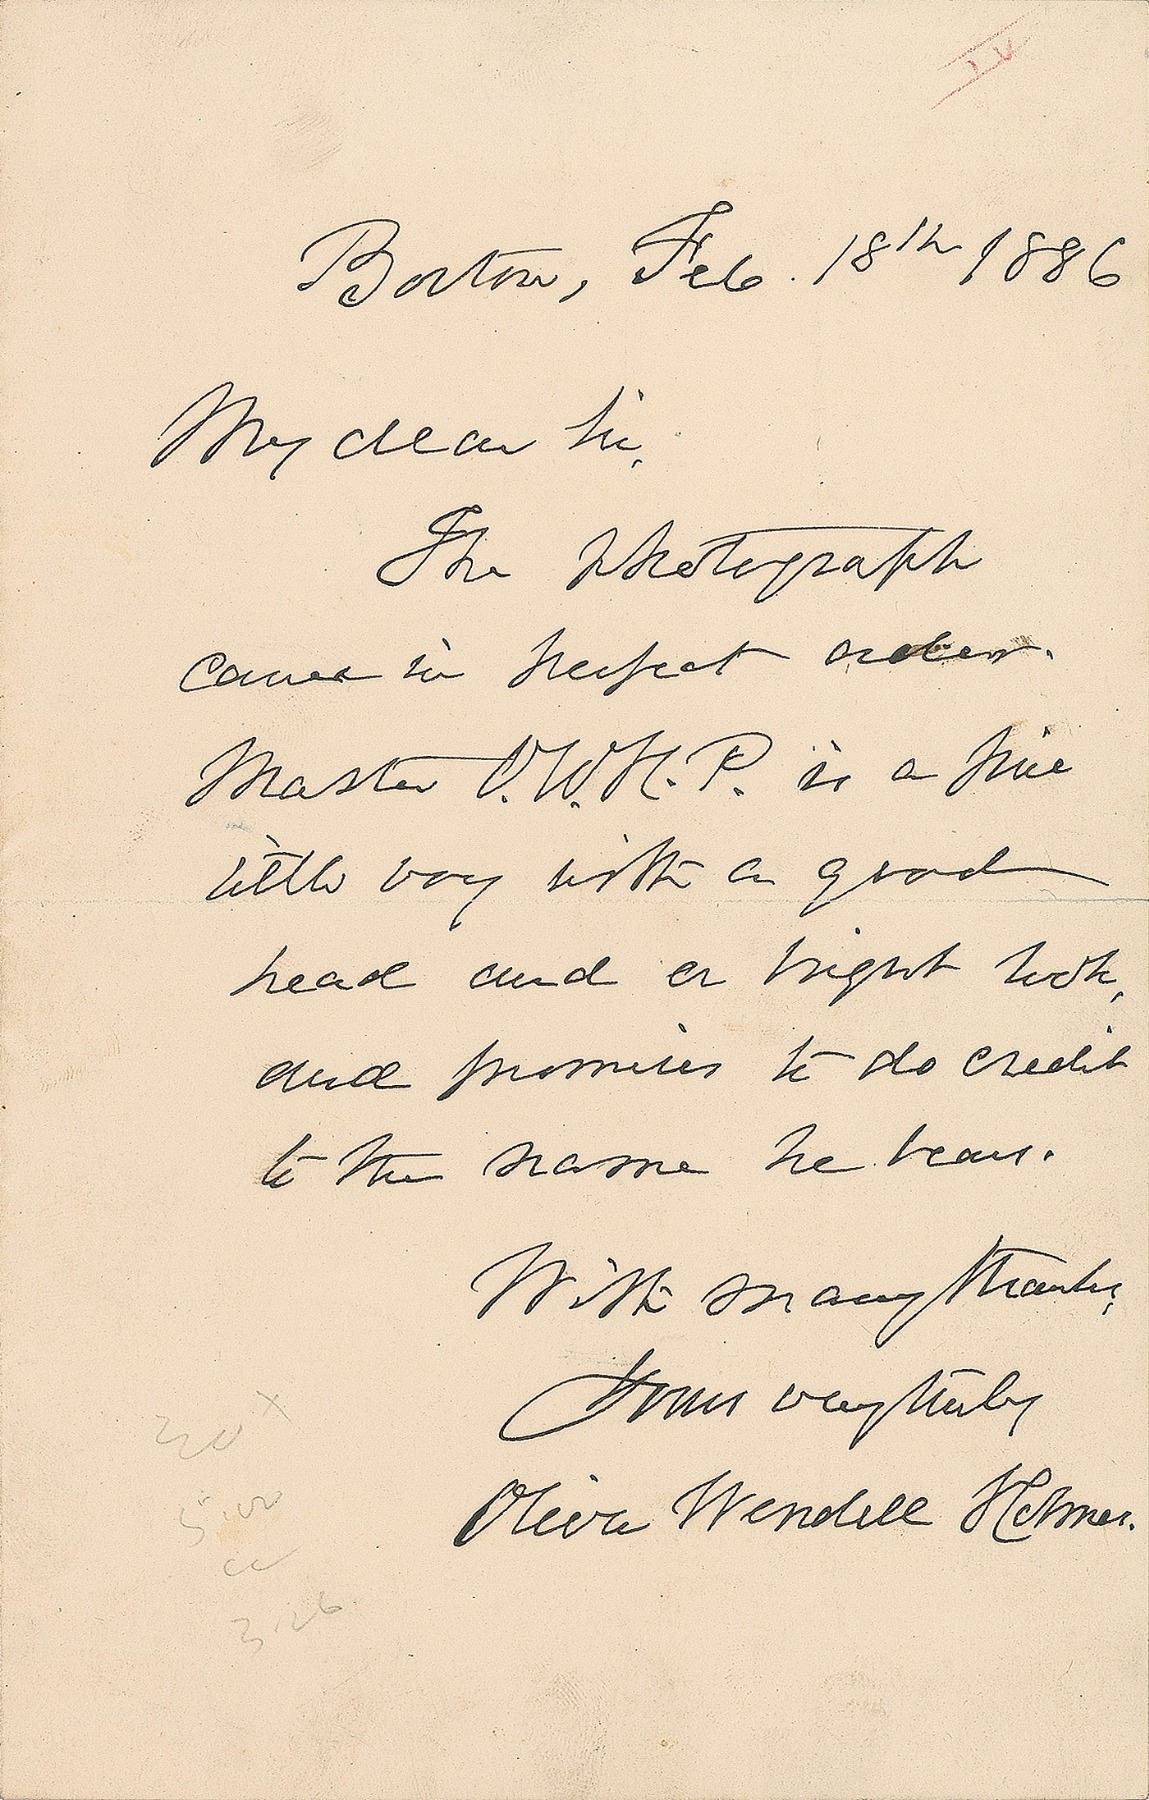 Boston, Feb. 18th 1886
My dear Sir,
The photograph
came in perfect order.
Master O.W.H.P. is a fine
little boy with a good
head and a bright look,
and promises to do credit
to the name he bears.
With many thanks,
Yours very truly
Oliver Wendell Holmes.